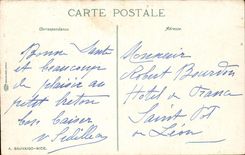 CARTE POSTALE
Correspondance
Adresse
Bonne Santé
et beaucoup
de plaisir au
petit breton
bons baisers
Monsieur
Robert Bourdon
Hotel de France
Saint Pol
de Leon
A. SAUVAIGO-NICE.